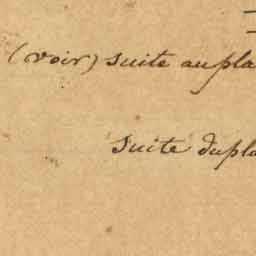 (voir) suite au pla
suite du pla